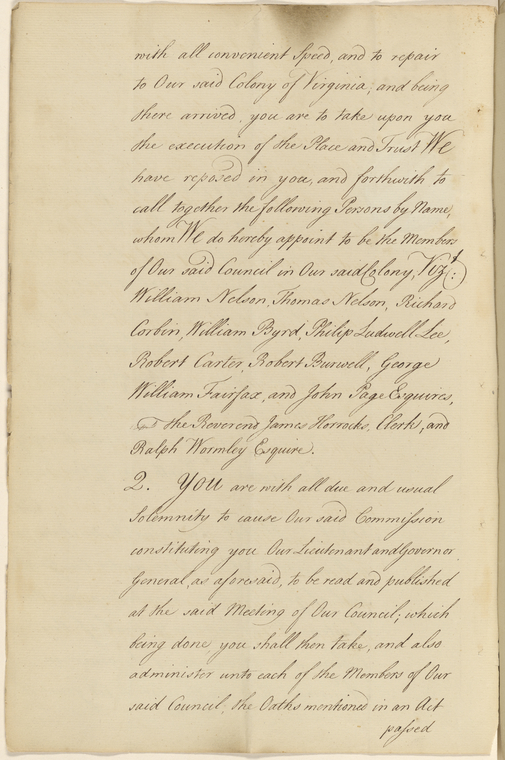 with all convenient Speed, and to repair
to Our said Colony of Virginia; and being
there arrived, you are to take upon you
the execution of the Place and Trust We
have reposed in you, and forthwith to
call together the following Persons by Name,
whom We do hereby appoint to be the Members
of Our said Council in Our said Colony, Vizt:
William Nelson, Thomas Nelson, Richard
Corbin, William Byrd, Philip Ludwell Lee,
Robert Carter, Robert Burwell, George
William Fairfax, and John Page Esquires,
the Reverend James Horrocks, Clerk, and
Ralph Wormley Esquire.
2. You are with all due and usual
Solemnity to cause Our said Commission
constituting you Our Lieutenant and Governor
General, as aforesaid, to be read and published
at the said Meeting of Our Council; which
being done, you shall then take, and also
administer unto each of the Members of Our
said Council, the Oaths mentioned in an Act
passed